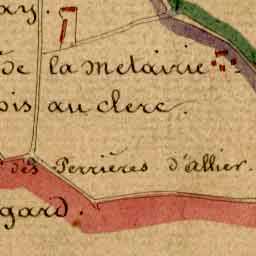 ay.
de la métairie
ois au clerc.
des Perrières d'Allier.
gard.